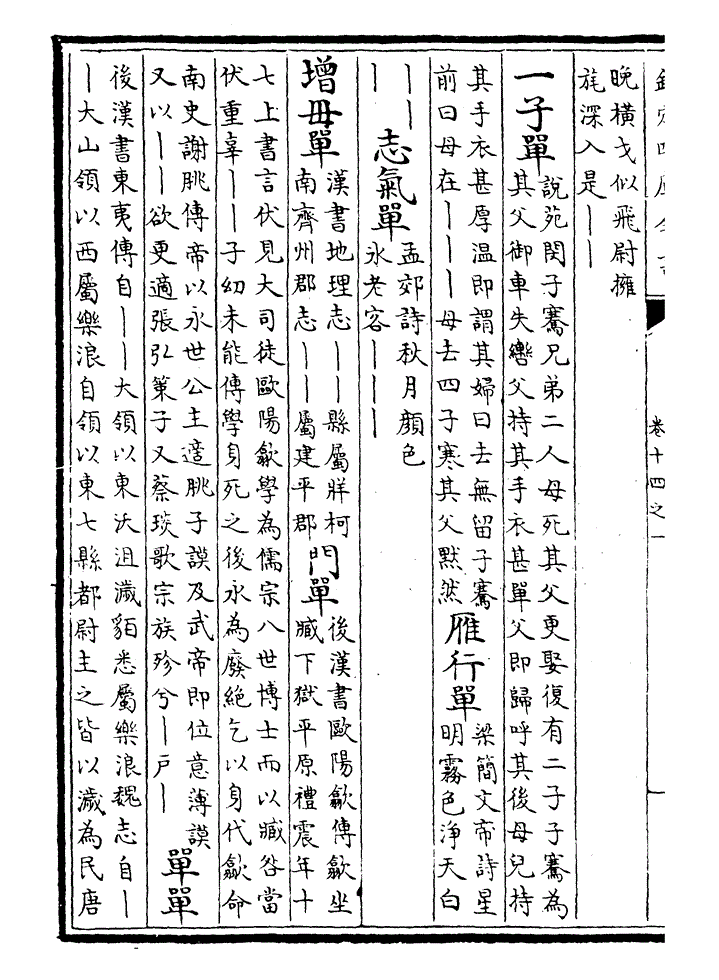 欽定四庫全書
卷十四之一
晚橫戈似飛尉擁
旄深入是｜｜
一子單
說苑閔子騫兄弟二人母死其父更娶復有二子子騫為
其父御車失轡父持其手衣甚單父即歸呼其後母兒持
其手衣甚厚温即謂其婦曰去無留子騫
前曰母在｜｜｜母去四子寒其父默然
雁行單
梁簡文帝詩星
明霧色浄天白
｜｜
｜
志氣單
孟郊詩秋月顔色
氷老客｜｜｜
增毋單
漢書地理志｜｜縣屬牂柯
南齊州郡志｜｜屬建平郡
門單
後漢書歐陽歙傳歙坐
臧下獄平原禮震年十
七上書言伏見大司徒歐陽歙學為儒宗八世博士而以臧咎當
伏重辜｜｜子幼未能傳學身死之後永為廢絶乞以身代歙命
南史謝朓傳帝以永世公主適朓子謨及武帝即位意薄謨
又以｜｜欲更適張弘策子又蔡琰歌宗族殄兮｜戶｜
單單
後漢書東夷傳自｜｜大領以東沃沮濊貊悉屬樂浪魏志自｜
｜大山領以西屬樂浪自領以東七縣都尉主之皆以濊為民唐